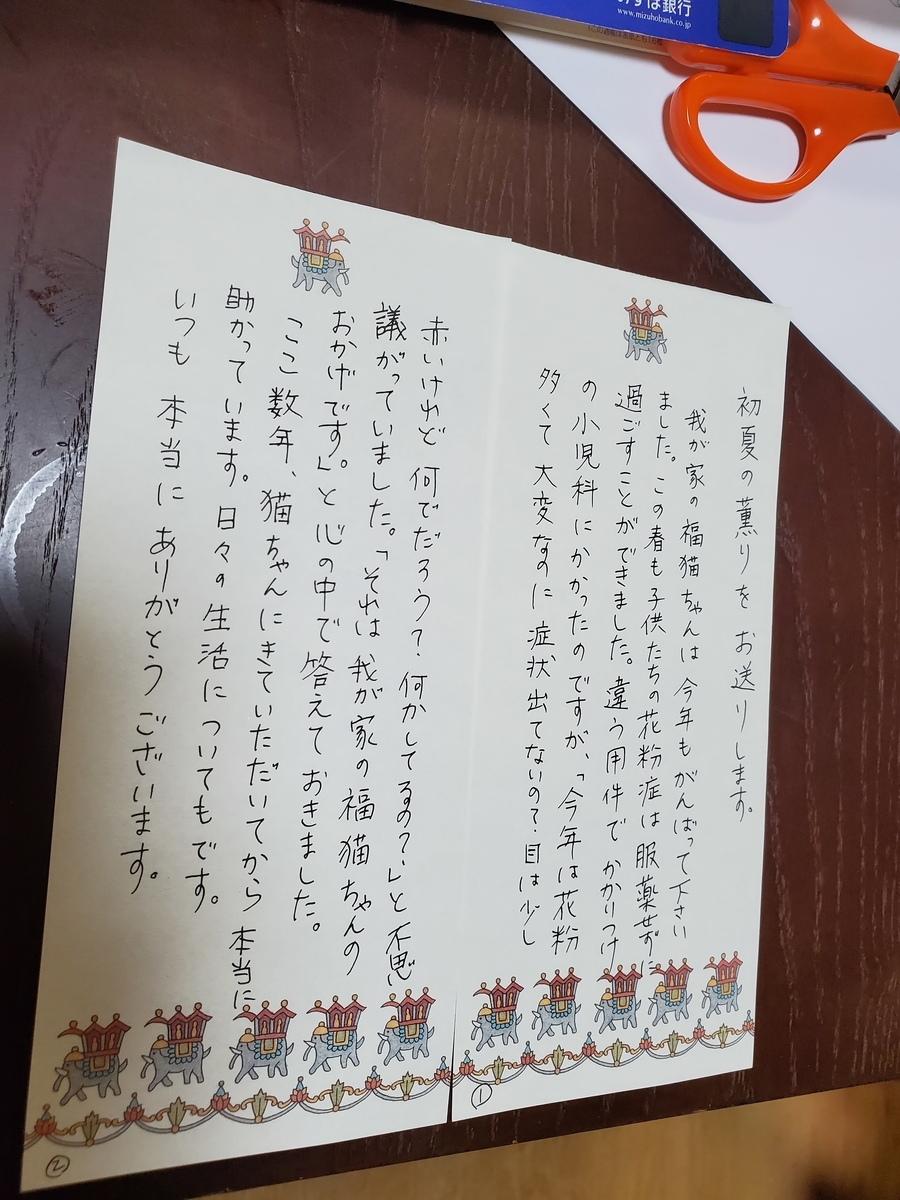 みずほ銀行
www.mizuhobank.co.jp
初夏の薫りを お送りします。
我が家の福猫ちゃんは 今年もがんばって下さい
ました。この春も子供たちの花粉症は服薬せずに
過ごすことができました。違う用件で かかりつけ
の小児科にかかったのですが、「今年は花粉
多くて 大変なのに 症状出てないの？目は少し
①
赤いけれど 何でだろう？何かしてるの？」と不思
議がっていました。「それは 我が家の福猫ちゃんの
おかげです。」と心の中で答えて おきました。
ここ数年、猫ちゃんにきていただいてから 本当に
助かっています。日々の生活についてもです。
いつも 本当に ありがとうございます。
②